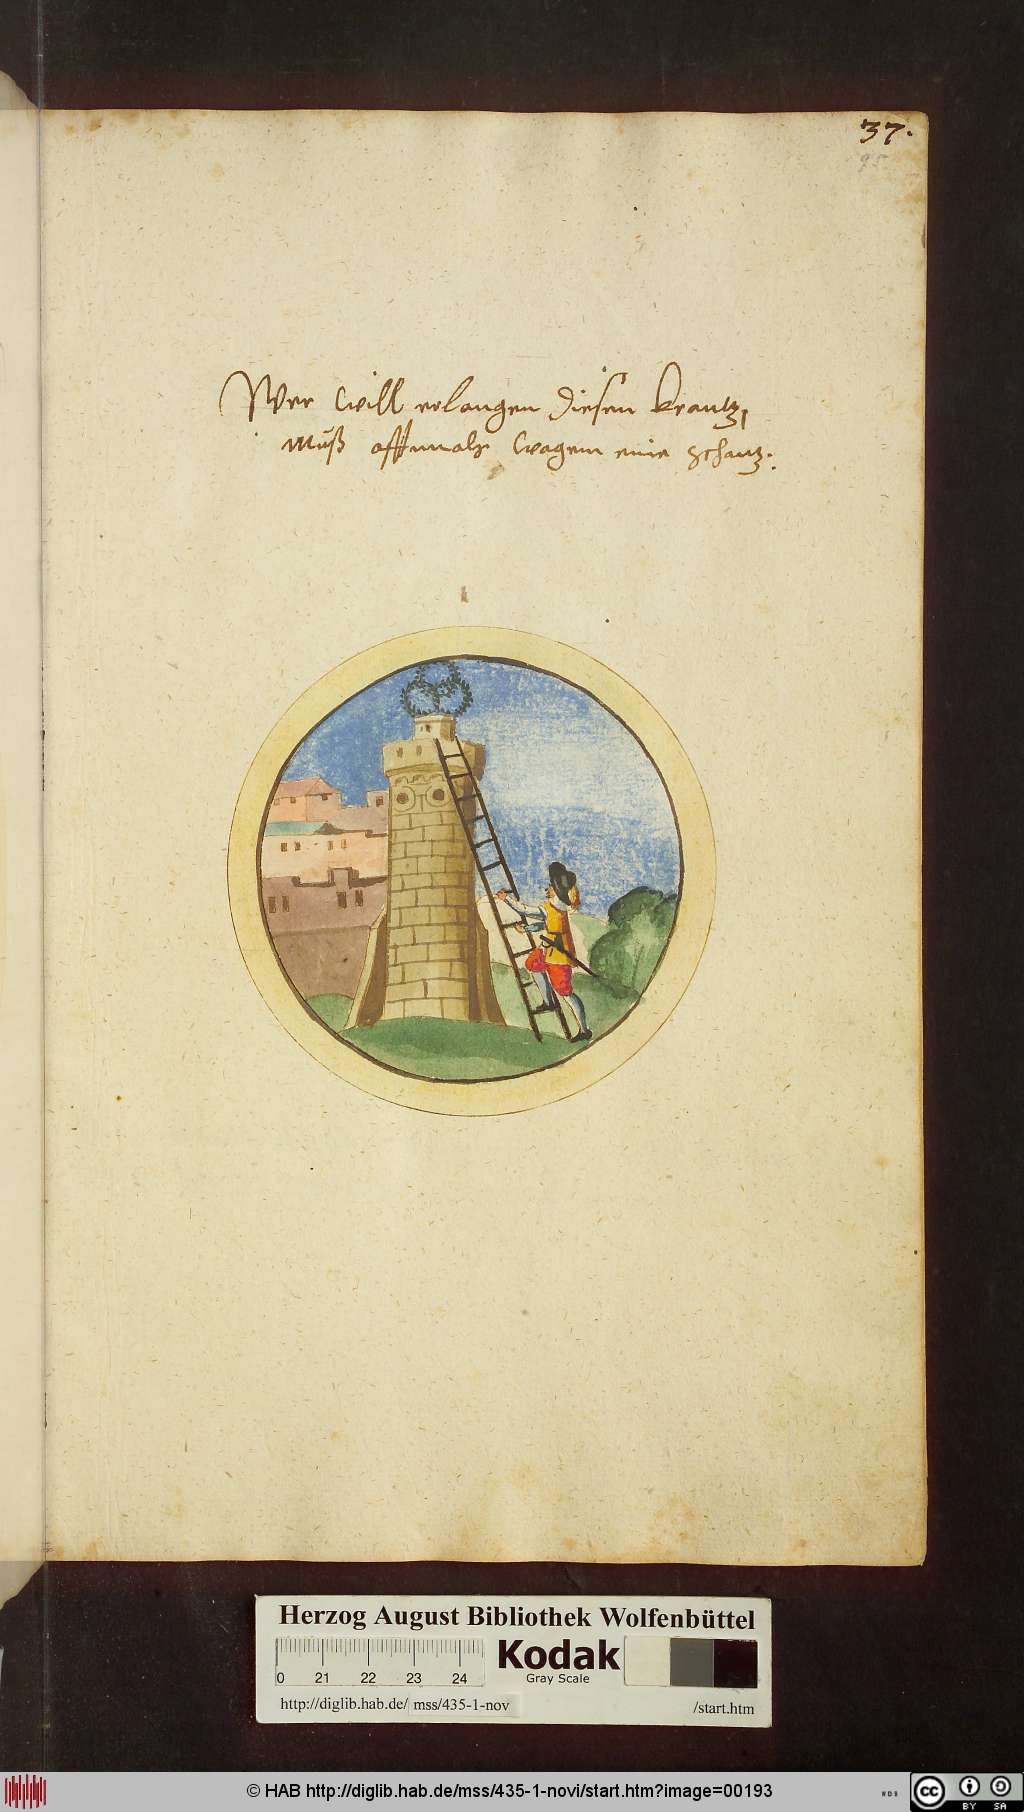 37.
95
Wer will erlangen diesen krantz,
Muß offtmals wagen eine schantz.
Herzog August Bibliothek Wolfenbüttel
0 21 22 23 24
Kodak
Gray Scale
http://diglib.hab.de/ mss/435-1-nov /start.htm
© HAB http://diglib.hab.de/mss/435-1-novi/start.htm?image=00193
WDB
CC BY SA